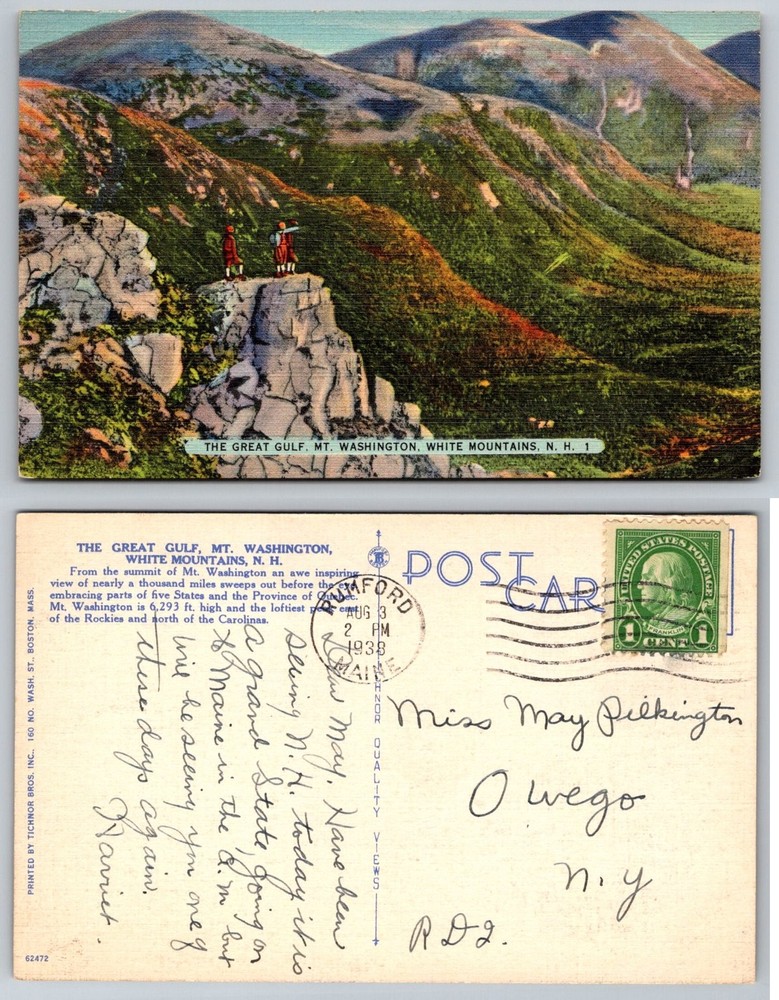 THE GREAT GULF, MT. WASHINGTON, WHITE MOUNTAINS, N. H. 1
THE GREAT GULF, MT. WASHINGTON,
WHITE MOUNTAINS, N. H.
From the summit of Mt. Washington an awe inspiring
view of nearly a thousand miles sweeps out before the eye
embracing parts of five States and the Province of Quebec.
Mt. Washington is 6,293 ft. high and the loftiest peak east
of the Rockies and north of the Carolinas.
PRINTED BY TICHNOR BROS. INC., 160 NO. WASH. ST., BOSTON, MASS.
62472
Dear May, Have been
seeing N. H. today it is
a grand State, going on
to Maine in the a.m but
will be seeing you one of
these days again.
Harriet.
TICHNOR QUALITY VIEWS
POST CARD
RUMFORD
AUG 3
2 PM
1938
MAINE
UNITED STATES POSTAGE
FRANKLIN
1 CENT 1
Miss May Pilkington
Owego
N.Y
R D 2.